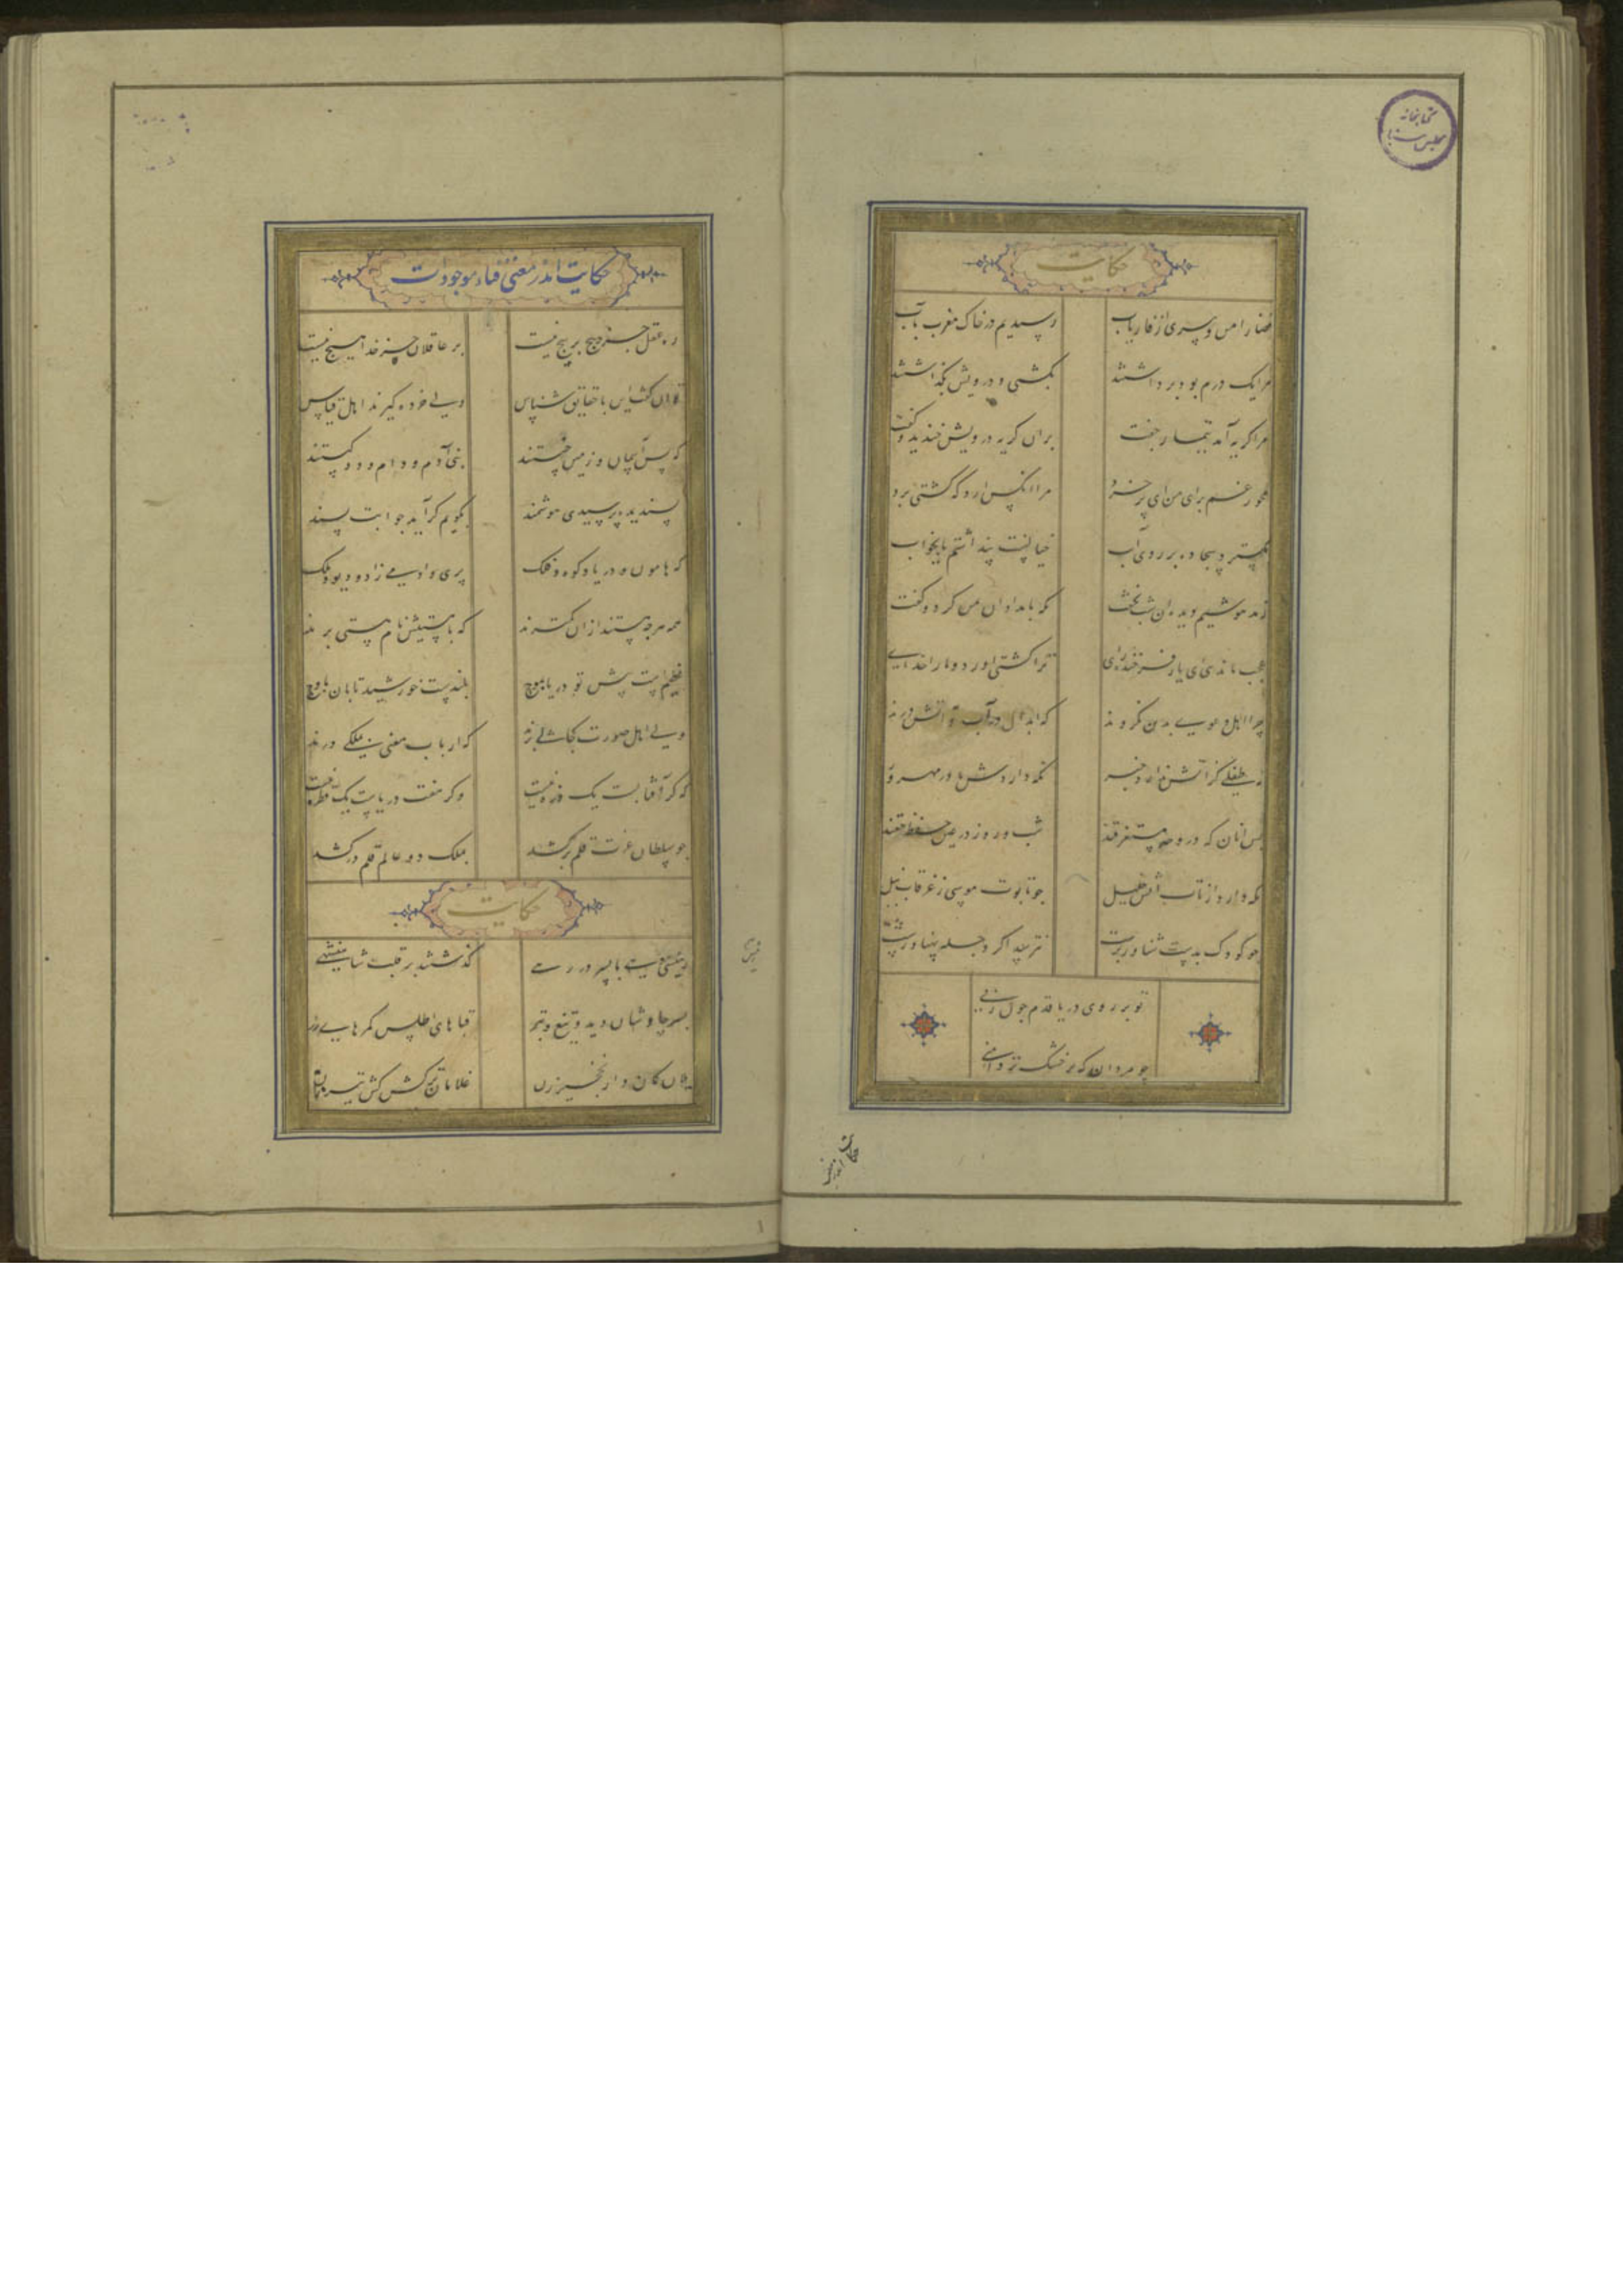 کتابخانه
مجلس سنا
حکایت
قضا را من و پیری از فاریاب رسیدیم در خاک مغرب بآب
مرا یک درم بود برداشتند بکشتی و درویش بگذاشتند
مرا گریه آمد ز تیمار جفت بران گریه درویش خندید و گفت
مخور غم برای من ای پر خرد مرا انکس ارد که کشتی برد
بگسترد سجاده بر روی آب خیالست پنداشتم یا بخواب
ز مدهوشیم دیده ان شب نخفت نگه بامدادان من کرد و گفت
عجب ماندی ای یار فرخنده رای ترا کشتی اورد و ما را خدای
چرا اهل دعوی بدین نگروند که ابدال در آب و آتش روند
نه طفلی کز آتش ندارد خبر نگه داردش مادر مهرور
پس انان که در وجد مستغرقند شب و روز در عین حفظ حقند
نگه دارد از تاب آتش خلیل چو تابوت موسی ز غرقاب نیل
چو کودک بدست شناور برست نترسد اگر دجله پهناورست
تو بر روی دریا قدم چون زنی
چو مردان که بر خشک تر دامنی
حکایت اندر معنی
حکایت اندر معنی فناء موجودات
ره عقل جز پیچ بر پیچ نیست بر عاقلان جز خدا هیچ نیست
توان گفتن این با حقایق شناس ولی خرده گیرند اهل قیاس
که پس آسمان و زمین چیستند بنی آدم و دام و دد کیستند
پسندیده پرسیدی هوشمند بگویم گر آید جوابت پسند
که هامون و دریا و کوه و فلک پری و ادمی زاد و دیو و ملک
همه هرچه هستند ازان کمترند که با هستیش نام هستی برند
عظیم است پیش تو دریا بموج بلندست خورشید تابان باوج
ولی اهل صورت کجا پی برند که ارباب معنی بملکی درند
که گر آفتابست یک ذره نیست وگر هفت دریاست یک قطره نیست
چو سلطان عزت قلم برکشد بملک دو عالم قلم درکشد
حکایت
رئیس دهی با پسر در رهی گذشتند بر قلب شاهنشهی
پسر چاوشان دید و تیغ و تبر قباهای اطلس کمرهای زر
یلان کمان دار نخجیر زن غلامان ترکش کش تیر زن